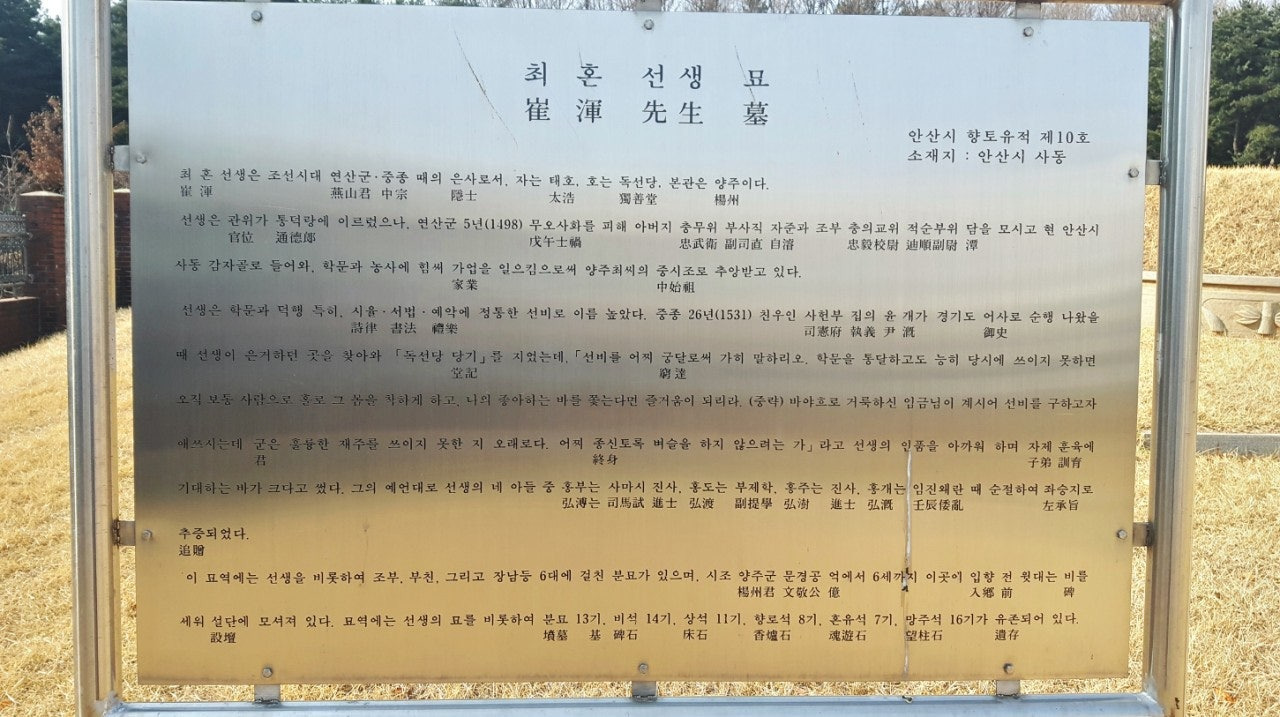 최 혼 선생 묘
崔 渾 先生 墓
안산시 향토유적 제10호
소재지 : 안산시 사동
최 혼 선생은 조선시대 연산군·중종 때의 은사로서, 자는 태호, 호는 독선당, 본관은 양주이다.
崔 渾 燕山君 中宗 隱士 太浩 獨善堂 楊州
선생은 관위가 통덕랑에 이르렀으나, 연산군 5년(1498) 무오사화를 피해 아버지 충무위 부사직 자준과 조부 충의교위 적순부위 담을 모시고 현 안산시
官位 通德郞 戊午士禍 忠武衛 副司直 自濬 忠毅校尉 迪順副尉 潭
사동 감자골로 들어와, 학문과 농사에 힘써 가업을 일으킴으로써 양주최씨의 중시조로 추앙받고 있다.
家業 中始祖
선생은 학문과 덕행 특히, 시율·서법·예악에 정통한 선비로 이름 높았다. 중종 26년(1531) 친우인 사헌부 집의 윤 개가 경기도 어사로 순행 나왔을
詩律 書法 禮樂 司憲府 執義 尹 漑 御史
때 선생이 은거하던 곳을 찾아와 「독선당 당기」를 지었는데, 「선비를 어찌 궁달로써 가히 말하리오. 학문을 통달하고도 능히 당시에 쓰이지 못하면
堂記 窮達
오직 보통 사람으로 홀로 그 몸을 착하게 하고, 나의 좋아하는 바를 쫓는다면 즐거움이 되리라. (중략) 바야흐로 거룩하신 임금님이 계시어 선비를 구하고자
애쓰시는데 군은 훌륭한 재주를 쓰이지 못한 지 오래로다. 어찌 종신토록 벼슬을 하지 않으려는 가」라고 선생의 인품을 아까워 하며 자제 훈육에
君 終身 子弟 訓育
기대하는 바가 크다고 썼다. 그의 예언대로 선생의 네 아들 중 홍부는 사마시 진사, 홍도는 부제학, 홍주는 진사, 홍개는 임진왜란 때 순절하여 좌승지로
弘溥는 司馬試 進士 弘渡 副提學 弘澍 進士 弘漑 壬辰倭亂 左承旨
추증되었다.
追贈
이 묘역에는 선생을 비롯하여 조부, 부친, 그리고 장남등 6대에 걸친 분묘가 있으며, 시조 양주군 문경공 억에서 6세까지 이곳에 입향 전 윗대는 비를
楊州君 文敬公 億 入鄕 前 碑
세워 설단에 모셔져 있다. 묘역에는 선생의 묘를 비롯하여 분묘 13기, 비석 14기, 상석 11기, 향로석 8기, 혼유석 7기, 망주석 16기가 유존되어 있다.
設壇 墳墓 基 碑石 床石 香爐石 魂遊石 望柱石 遺存